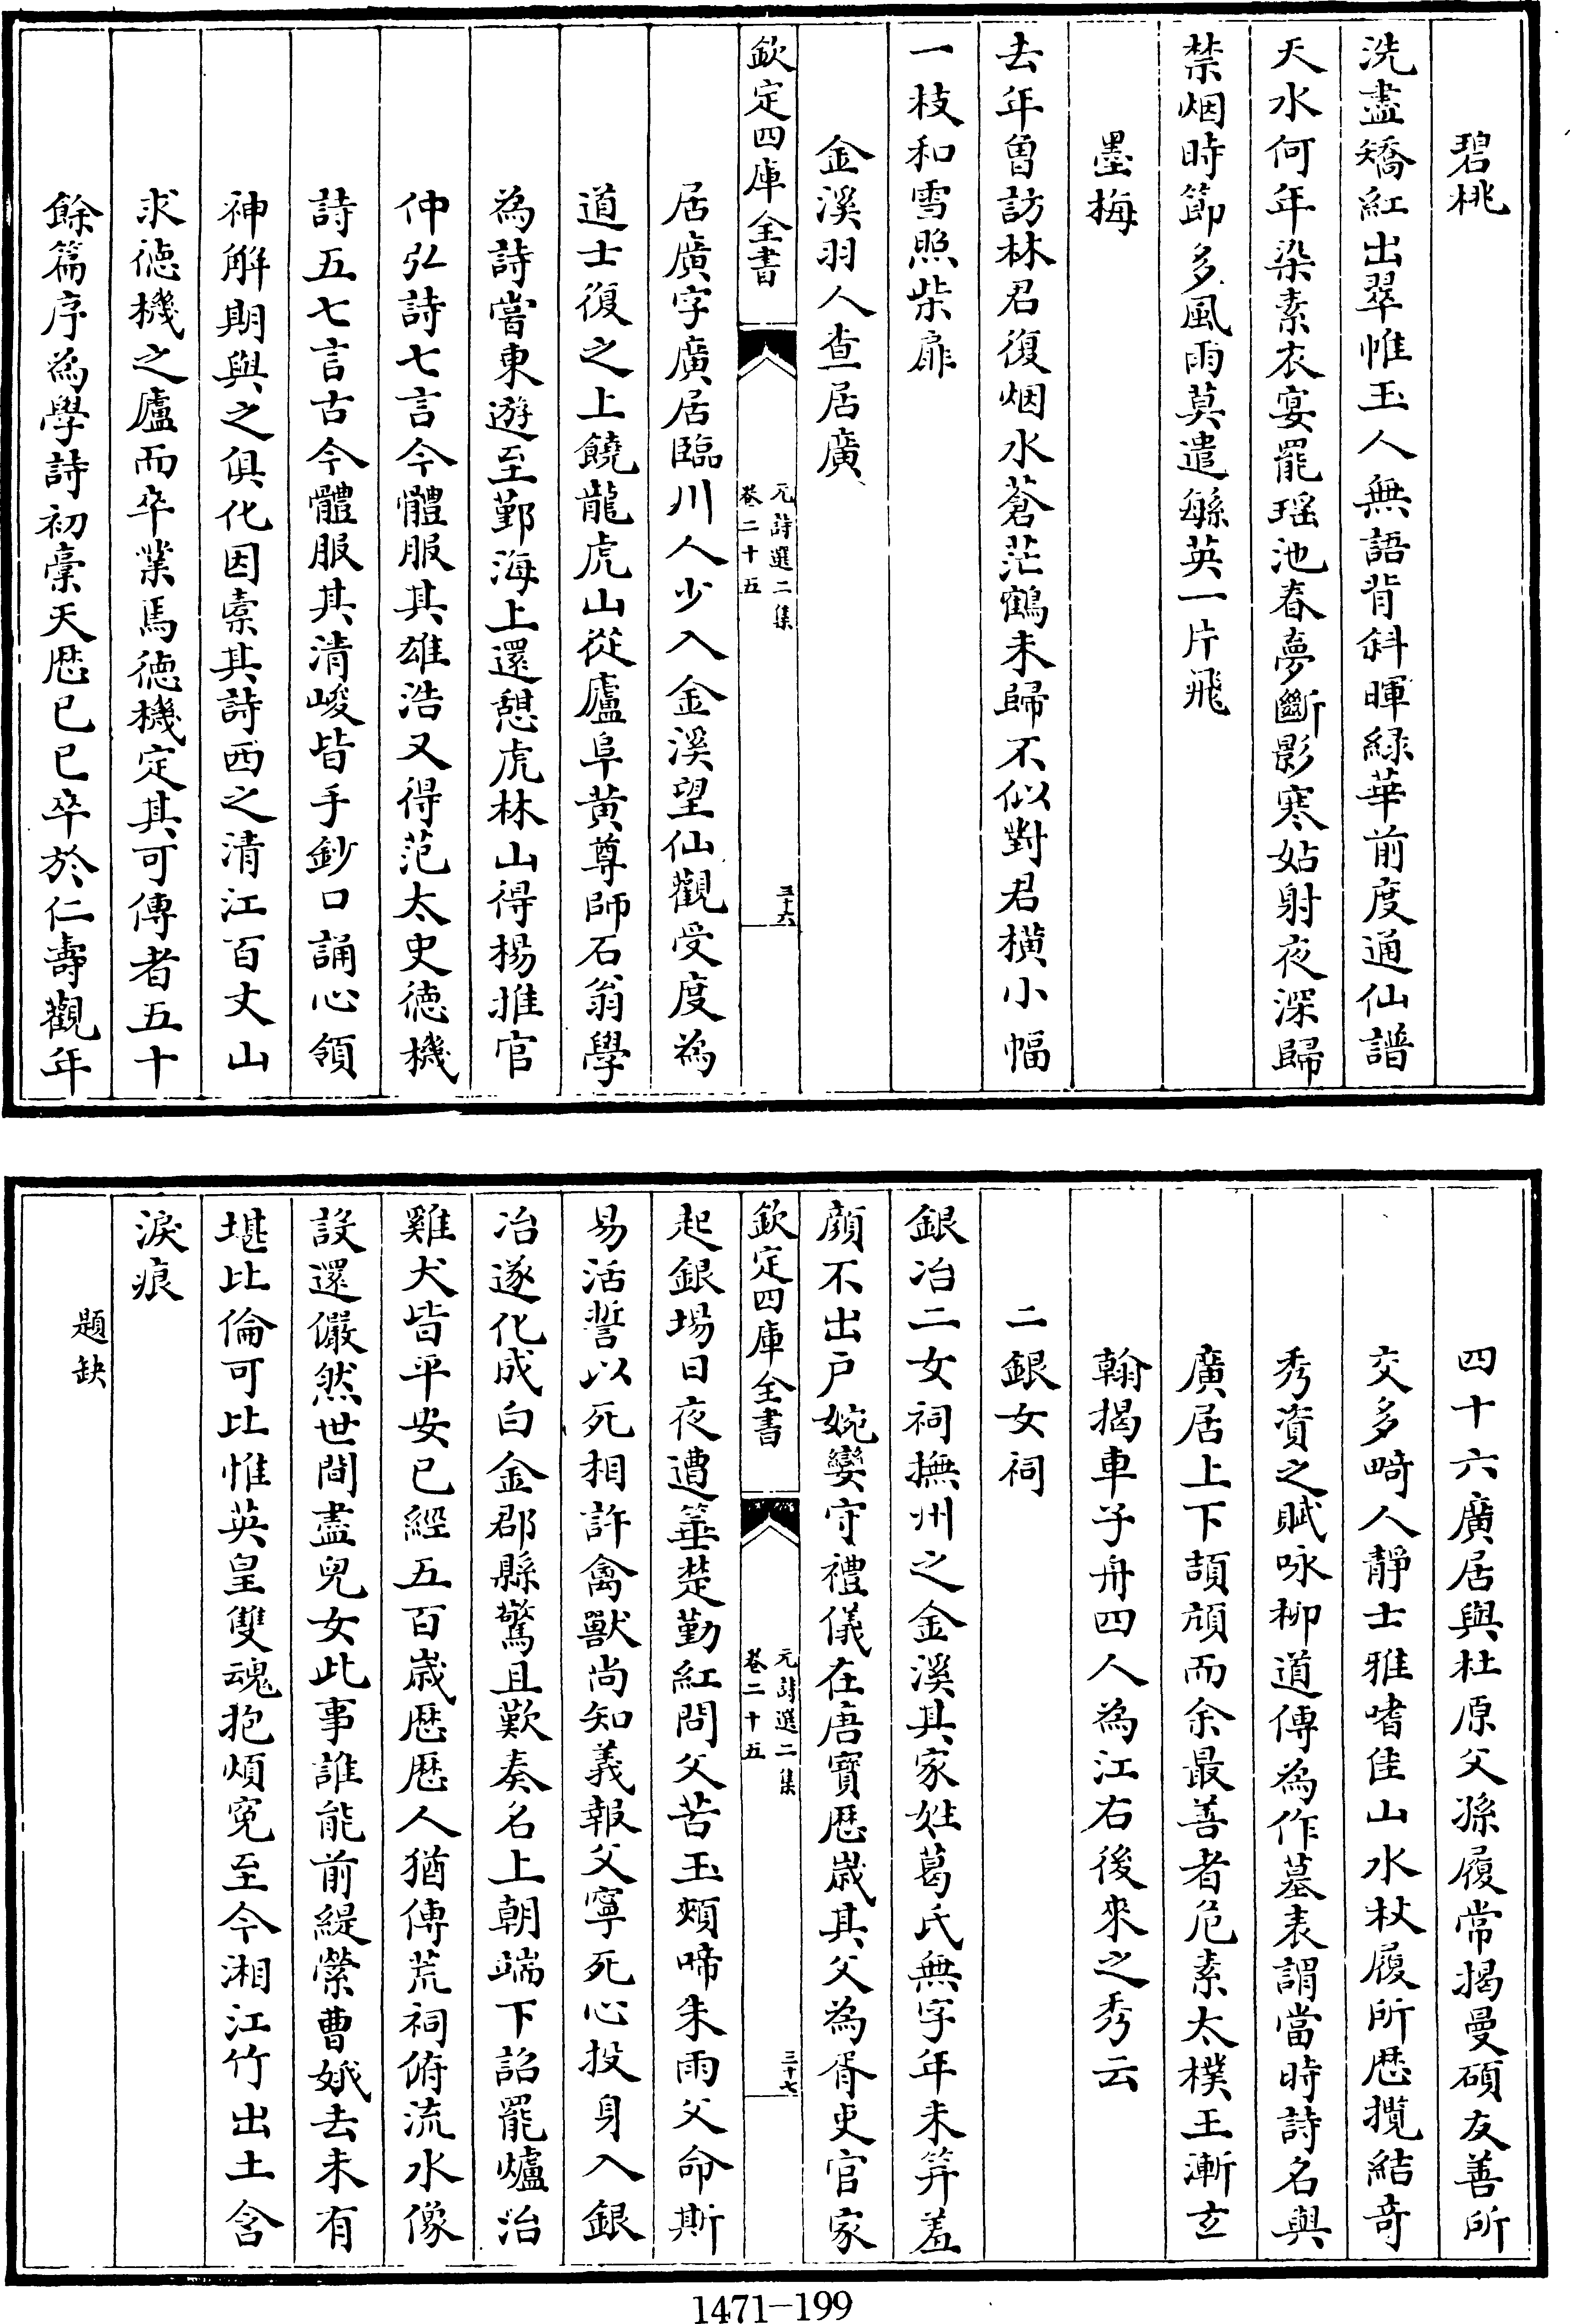 碧桃
洗盡矯紅出翠惟玉人無語背斜暉緑華前度通仙譜
天水何年染素衣宴罷瑶池春夢斷影寒姑射夜深歸
禁烟時節多風雨莫遣繇英一片飛
墨梅
去年曽訪林君復烟水蒼茫鶴未歸不似對君横小幅
一枝和雪照柴扉
金溪羽人查居廣
欽定四庫全書
元詩選二集
卷二十五
三十六
居廣字廣居臨川人少入金溪望仙觀受度為
道士復之上饒龍虎山從廬阜黄尊師石翁學
為詩嘗東遊至鄞海上還憩虎林山得楊推官
仲弘詩七言今體服其雄浩又得范太史徳機
詩五七言古今體服其清峻皆手鈔口誦心領
神解期與之俱化因橐其詩西之清江百丈山
求徳機之廬而卒業焉徳機定其可傳者五十
餘篇序為學詩初稾天歴已巳卒於仁壽觀年
四十六廣居與杜原父孫履常揭曼碩友善所
交多畸人靜士雅嗜佳山水杖履所歴攬結竒
秀資之賦咏柳道傳為作墓表謂當時詩名與
廣居上下頡頏而余最善者危素太樸王漸玄
翰揭車子舟四人為江右後來之秀云
二銀女祠
銀冶二女祠撫州之金溪其家姓葛氏無字年未笄羞
顔不出戸婉孌守禮儀在唐寳歴嵗其父為胥吏官家
欽定四庫全書
元詩選二集
卷二十五
三十七
起銀塲日夜遭箠楚勤紅問父苦玉頰啼朱雨父命斯
易活誓以死相許禽獸尚知義報父寧死心投身入銀
冶遂化成白金郡縣驚且歎奏名上朝端下詔罷爐冶
雞犬皆平安已經五百嵗歴歴人猶傳荒祠俯流水像
設還儼然世間盡兒女此事誰能前緹縈曹娥去未有
堪比倫可比惟英皇雙魂抱煩寃至今湘江竹出土含
淚痕
題缺
1471-199